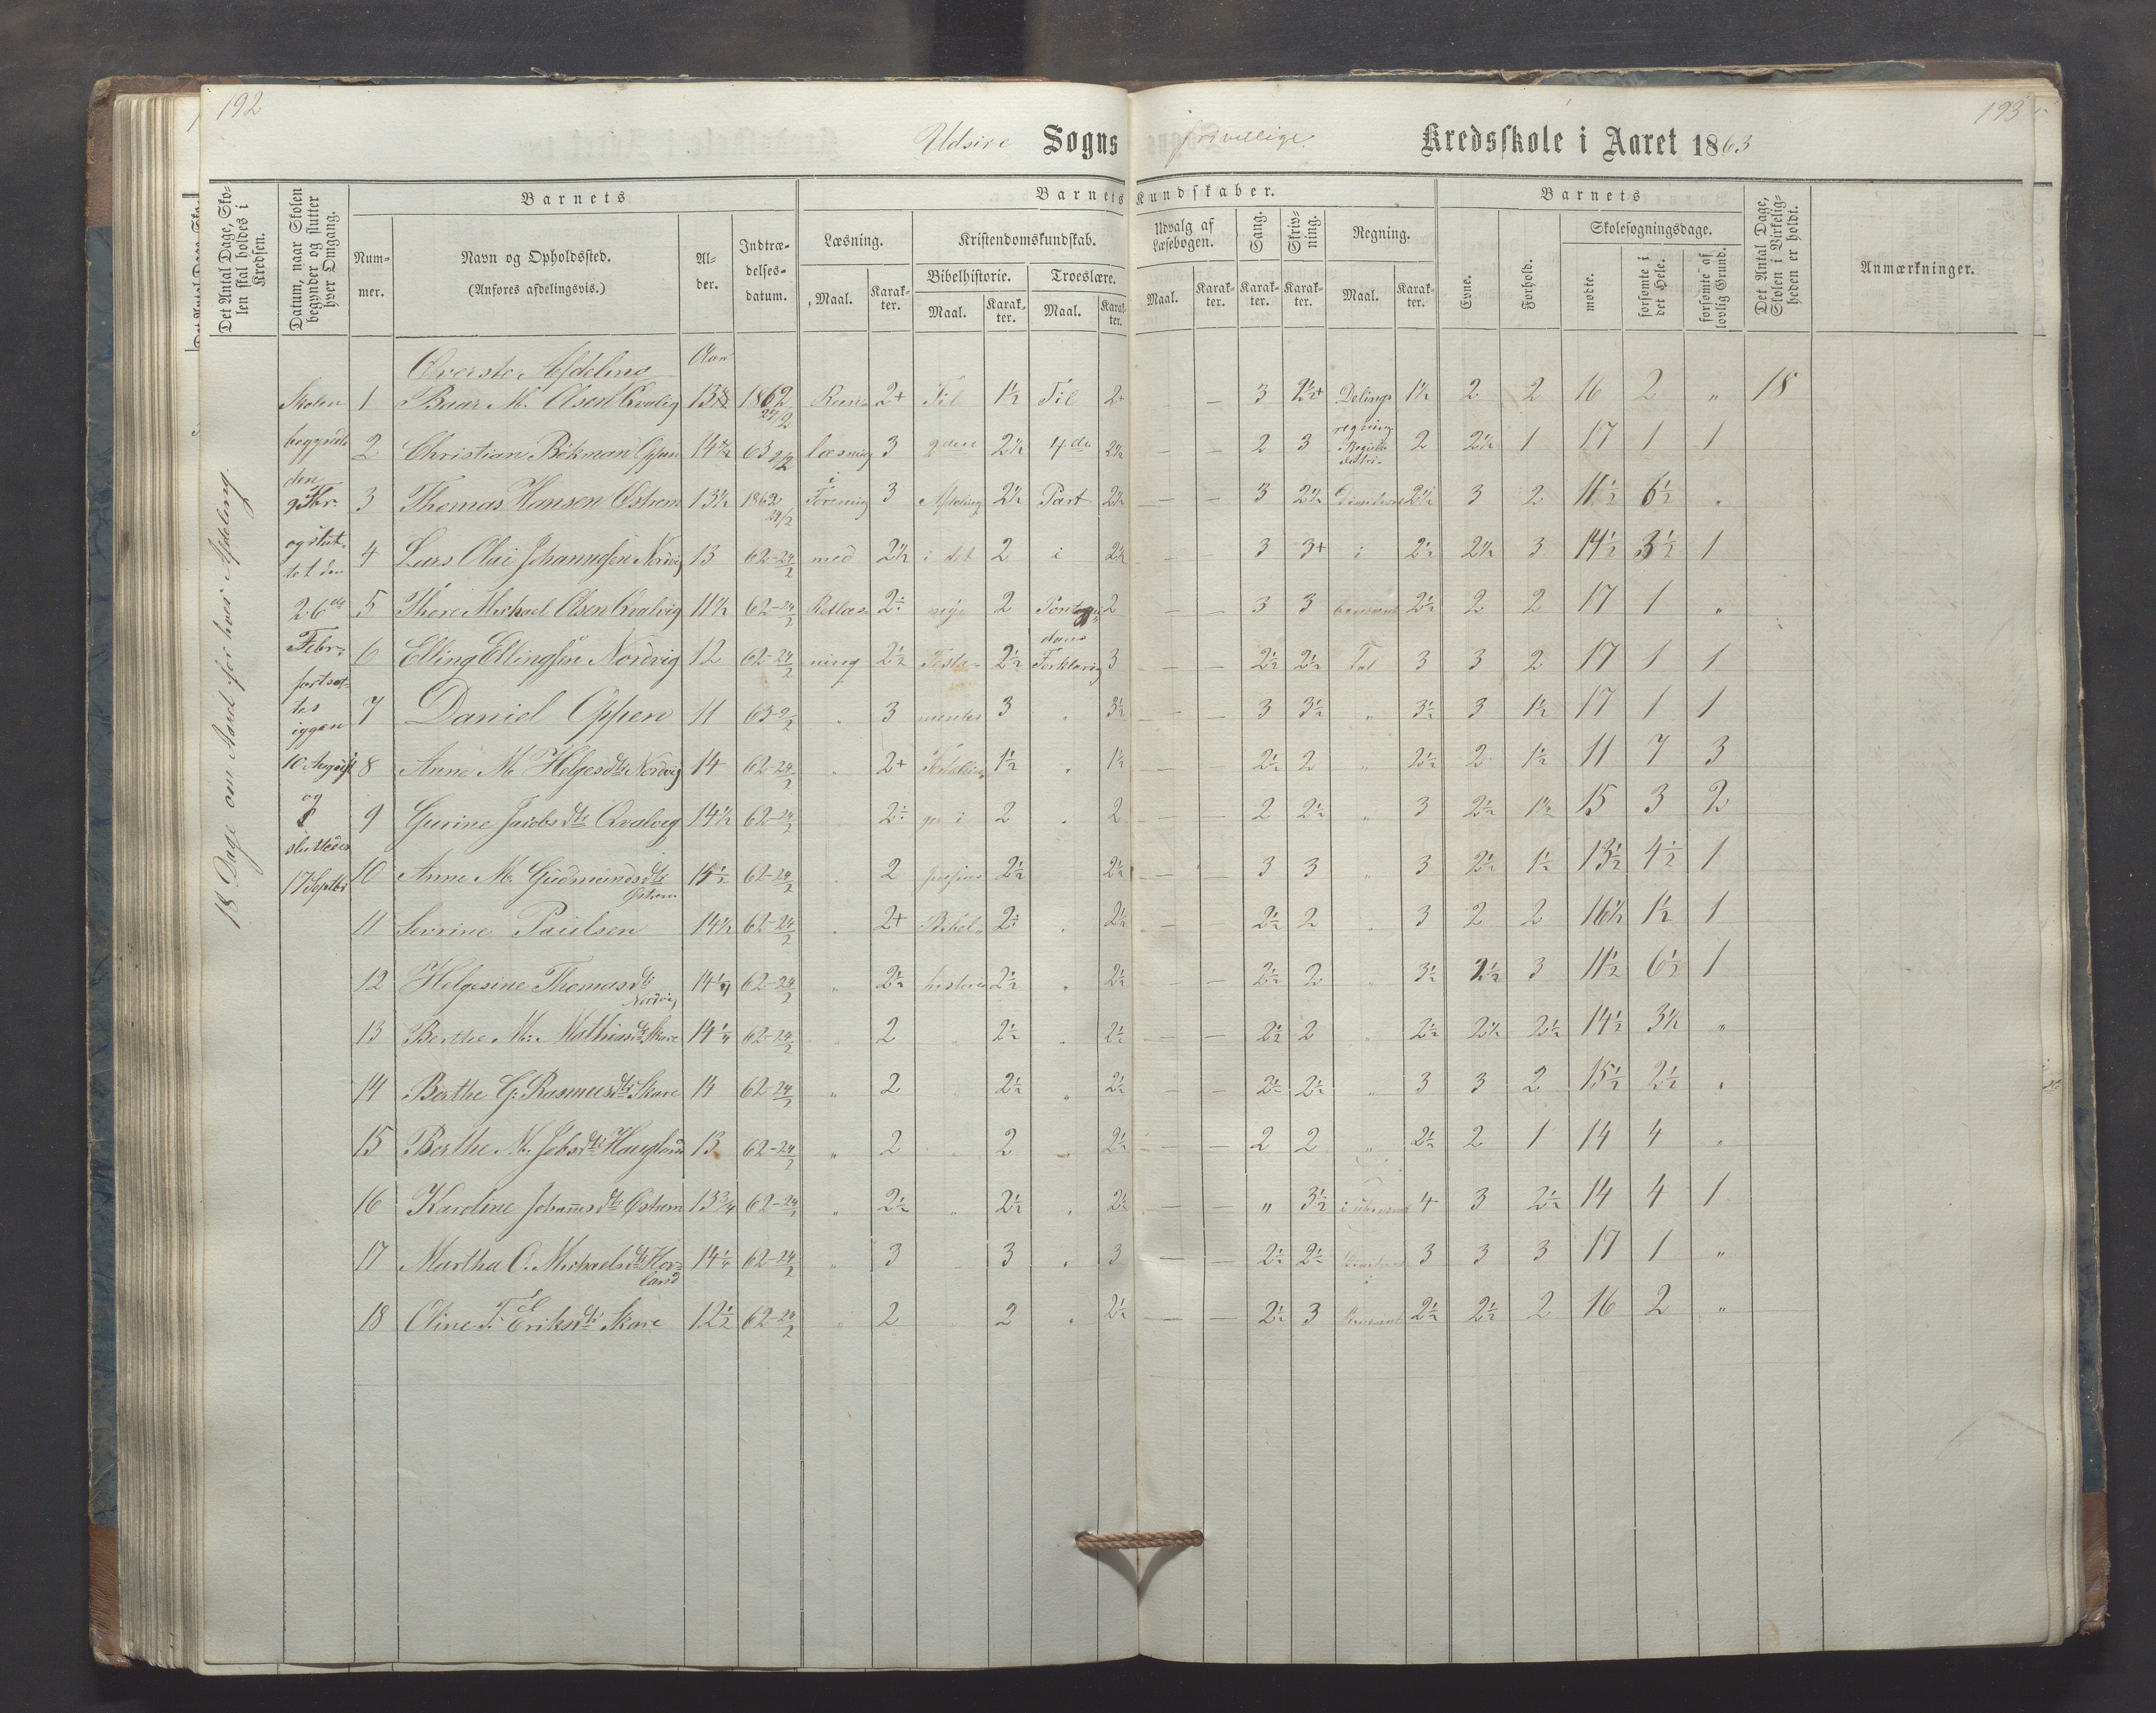 192
193
Udsire Sogns frivillige Kredsskole i Aaret 1863
Det Antal Dage, Skolen skal holdes i Kredsen.
Datum, naar Skolen begynder og slutter hver Omgang.
Barnets
Nummer.
Navn og Opholdssted.
(Anføres afdelingsvis.)
Alder.
Indtrædelsesdatum.
Barnets Kundskaber.
Læsning.
Maal.
Karakter.
Kristendomskundskab.
Bibelhistorie.
Maal.
Karakter.
Troeslære.
Maal.
Karakter.
Udvalg af Læsebogen.
Maal.
Karakter.
Sang.
Karakter.
Skrivning.
Karakter.
Regning.
Maal.
Karakter.
Barnets
Evne.
Forhold.
Skolesøgningsdage.
mødte.
forsømte i det Hele.
forsømte af lovlig Grund.
Det Antal Dage, Skolen i Virkeligheden er holdt.
Anmærkninger.
18 Dage om Aaret for hver Afdeling.
Skolen
begyndte
den
9 Febr.
og slut-
tet den
26de
Febr.
fortsat-
tes
iggen
10 August
og
sluttedes
17 Septbr
Øverste Afdeling
Aar
1 Baar M. Olsen Kvalvig 1862 24/2 2+ Til 1½ Til 2+ - 3 2½+ Delings 1½ 2 2 16 2 " 18
regning
2 Christian Bökman Oppen 63 9/2 læsning 3 2den 2½ 4de 2½ - - 2 3 2 2½ 1 17 1 1
3 Thomas Hansen Østrem 13½ 1862 24/2 Forening 3 Afdeling 2½ Part 2½ - - 3 2½ 2½ 3 2 11½ 6½ "
4 Lars Olai Johannesen Nordvig 13 62-24/2 med 2½ i det 2 i 2½ - - 3 3+ i 2½ 2½ 3 14½ 3½ 1
5 Thore Michael Olsen Kvalvig 11½ 62-24/2 Retlæs- 2÷ nye 2 Pontop- 2 - - 3 3 2½ 2 2 17 1 "
6 Elling Ellingsen Nordvig 12 62-24/2 ning 2½ Testa- 2½ Forklaring 3 - - 2½ 2½ Tal 3 3 2 17 1 1
7 Daniel Oppen 11 63-9/2 " 3 mentes 3 " 3½ - - 3 3½ " 3½ 3 1½ 17 1 1
8 Anne M. Helgesdtr Nordvig 14 62-24/2 " 2+ 1½ " 1½ - - 2½ 2 " 2½ 2 1½ 11 7 3
9 Gurine Jacobsdtr Qvalvig 14½ 62-24/2 2÷ ger i 2 " 2 - - 2 2½ " 3 2½ 1½ 15 3 2
10 Anne M. Gudmundsdtr Østrem 62-24/2 " 2 2½ 2½ - - 3 3 " 3 2½ 1½ 13½ 4½ 1
11 Sevrine Paulsen 14½ 62-24/2 " 2+ Bibel- 2÷ " 2½ - 2½ 2 " 3 2 2 16½ 1½ 1
12 Helgesine Thomasdtr Nordvig 62-24/2 " 2½ historie 2½ " 2½ - - 2½ 2 3½ 2½ 3 11½ 6½ 1
13 Berthe M. Mathiasdtr Skare 14¼ 62-24/2 " 2 " 2½ " 2½ - - 2½ 2 " 2½ 2½ 2½ 14½ 3½ "
14 Berthe G. Rasmusdtr Skare 14 62-24/2 " 2 " 2½ " 2½ - - 2½ 2½ " 3 3 2 15½ 2½ "
15 Berthe M. Jobsdtr Hougland 13 62-24/2 " 2 " 2 " 2½ - - 2 2 " 2½ 2 1 14 4 "
16 Karoline Johannsdtr Østrem 13¾ 62-24/2 " 2½ " 2½ " 2½ - - " 3½ 4 3 2½ 14 4 1
17 Martha O. Michaelsdtr Hovland 14¼ 62-24/2 " 3 3 " 3 - - 2½ 2½ 3 3 3 17 1 "
18 Oline T. E. Eriksdtr Skare 12½ 62-24/2 " 2 2 " 2½ - - 2½ 3 2½ 2½ 2 16 2 "